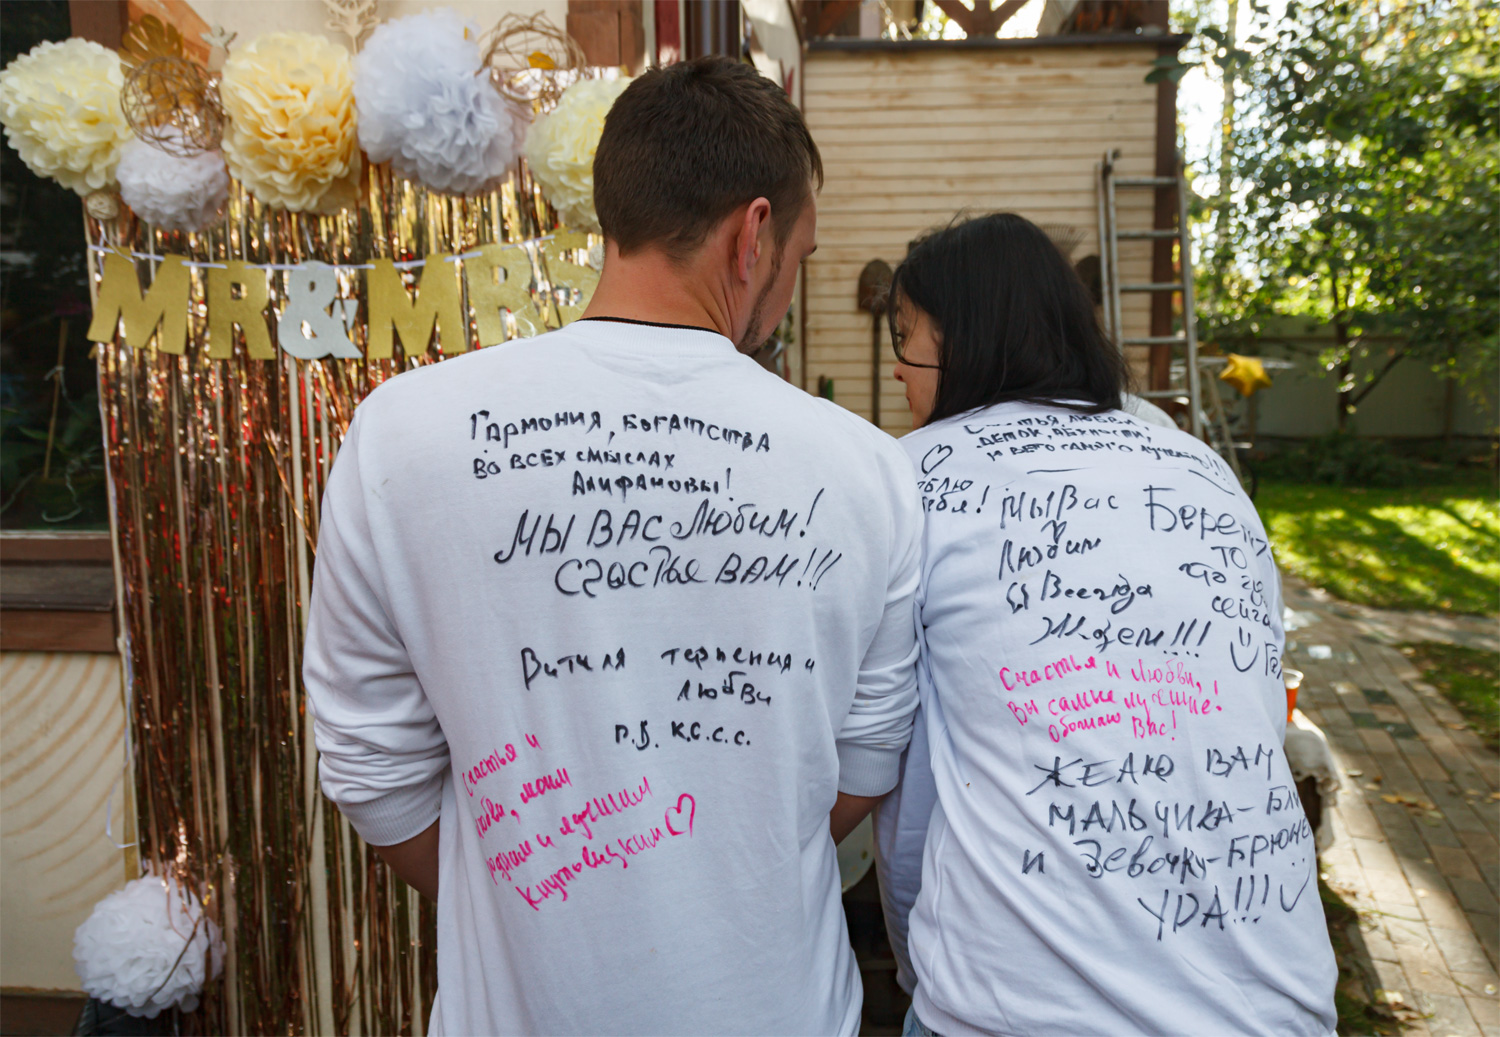 MR & MRS
Гармония, богатства
во всех смыслах
Алифановы!
Мы вас любим!
Счастье вам!!!
терпения и
любви
P.S. К.С.С.С.
Счастья и
любви, моим
родным и лучшим
♡
Счастья, любви,
деток,
и всего самого лучшего!!!
♡
тебя!
Мы Вас
♡
Любим
и Всегда
Ждем!!!
Берег
то
что
сейча
Счастья и любви,
Вы самые лучшие!
Обожаю Вас!
Желаю вам
мальчика-бл
и девочку-брюне
УРА!!!